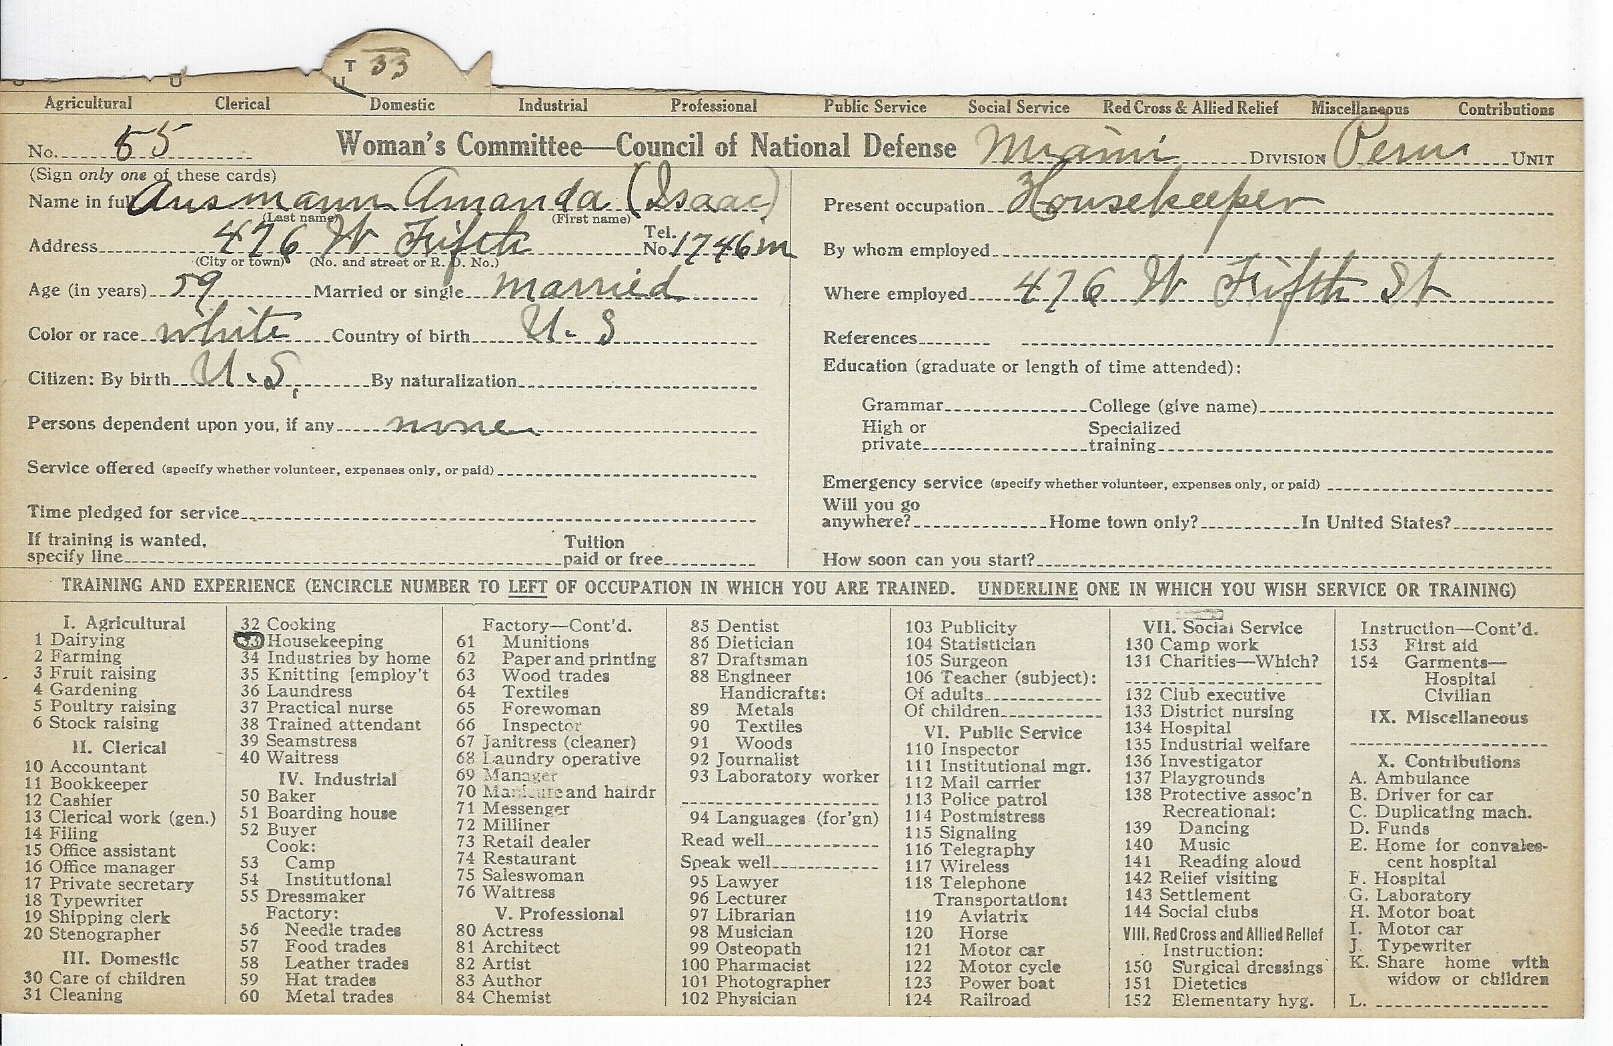 T 33
U
Agricultural Clerical Domestic Industrial Professional Public Service Social Service Red Cross & Allied Relief Miscellaneous Contributions
No. 55 Woman's Committee—Council of National Defense Miami DIVISION Peru UNIT
(Sign only one of these cards)
Name in full Ausmann Amanda (Isaac)
(Last name) (First name)
Address 476 W Fifth Tel. No. 1746m
(City or town) (No. and street or R. D. No.)
Age (in years) 59 Married or single married
Color or race white Country of birth U. S
Citizen: By birth U. S. By naturalization
Persons dependent upon you, if any none
Service offered (specify whether volunteer, expenses only, or paid)
Time pledged for service
If training is wanted, specify line Tuition paid or free
Present occupation Housekeeper
By whom employed
Where employed 476 W Fifth St
References
Education (graduate or length of time attended):
Grammar College (give name)
High or private Specialized training
Emergency service (specify whether volunteer, expenses only, or paid)
Will you go anywhere? Home town only? In United States?
How soon can you start?
TRAINING AND EXPERIENCE (ENCIRCLE NUMBER TO LEFT OF OCCUPATION IN WHICH YOU ARE TRAINED. UNDERLINE ONE IN WHICH YOU WISH SERVICE OR TRAINING)
I. Agricultural
1 Dairying
2 Farming
3 Fruit raising
4 Gardening
5 Poultry raising
6 Stock raising
II. Clerical
10 Accountant
11 Bookkeeper
12 Cashier
13 Clerical work (gen.)
14 Filing
15 Office assistant
16 Office manager
17 Private secretary
18 Typewriter
19 Shipping clerk
20 Stenographer
III. Domestic
30 Care of children
31 Cleaning
32 Cooking
33 Housekeeping
34 Industries by home
35 Knitting [employ't
36 Laundress
37 Practical nurse
38 Trained attendant
39 Seamstress
40 Waitress
IV. Industrial
50 Baker
51 Boarding house
52 Buyer
Cook:
53 Camp
54 Institutional
55 Dressmaker
Factory:
56 Needle trades
57 Food trades
58 Leather trades
59 Hat trades
60 Metal trades
Factory—Cont'd.
61 Munitions
62 Paper and printing
63 Wood trades
64 Textiles
65 Forewoman
66 Inspector
67 Janitress (cleaner)
68 Laundry operative
69 Manager
70 Manicure and hairdr
71 Messenger
72 Milliner
73 Retail dealer
74 Restaurant
75 Saleswoman
76 Waitress
V. Professional
80 Actress
81 Architect
82 Artist
83 Author
84 Chemist
85 Dentist
86 Dietician
87 Draftsman
88 Engineer
Handicrafts:
89 Metals
90 Textiles
91 Woods
92 Journalist
93 Laboratory worker
94 Languages (for'gn)
Read well
Speak well
95 Lawyer
96 Lecturer
97 Librarian
98 Musician
99 Osteopath
100 Pharmacist
101 Photographer
102 Physician
103 Publicity
104 Statistician
105 Surgeon
106 Teacher (subject):
Of adults
Of children
VI. Public Service
110 Inspector
111 Institutional mgr.
112 Mail carrier
113 Police patrol
114 Postmistress
115 Signaling
116 Telegraphy
117 Wireless
118 Telephone
Transportation:
119 Aviatrix
120 Horse
121 Motor car
122 Motor cycle
123 Power boat
124 Railroad
VII. Social Service
130 Camp work
131 Charities—Which?
132 Club executive
133 District nursing
134 Hospital
135 Industrial welfare
136 Investigator
137 Playgrounds
138 Protective assoc'n
Recreational:
139 Dancing
140 Music
141 Reading aloud
142 Relief visiting
143 Settlement
144 Social clubs
VIII. Red Cross and Allied Relief
Instruction:
150 Surgical dressings
151 Dietetics
152 Elementary hyg.
Instruction—Cont'd.
153 First aid
154 Garments—
Hospital
Civilian
IX. Miscellaneous
X. Contributions
A. Ambulance
B. Driver for car
C. Duplicating mach.
D. Funds
E. Home for convales-
cent hospital
F. Hospital
G. Laboratory
H. Motor boat
I. Motor car
J. Typewriter
K. Share home with
widow or children
L.